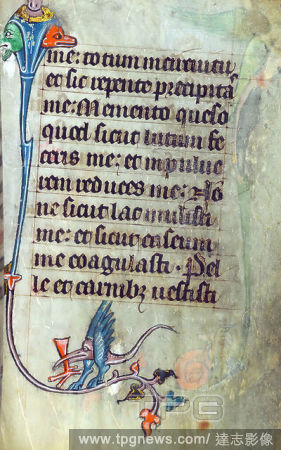 me: totum in circuitu
et sic repente precipitas
me: Memento queso
quod sicut lutum fe
ceris me: et in pulue
rem reduces me: Nō
ne sicut lac mulsisti
me: et sicut caseum
me coagulasti. Pel
le et carnibꝫ uestisti
TPG
www.tpgnews.com/ 達志影像